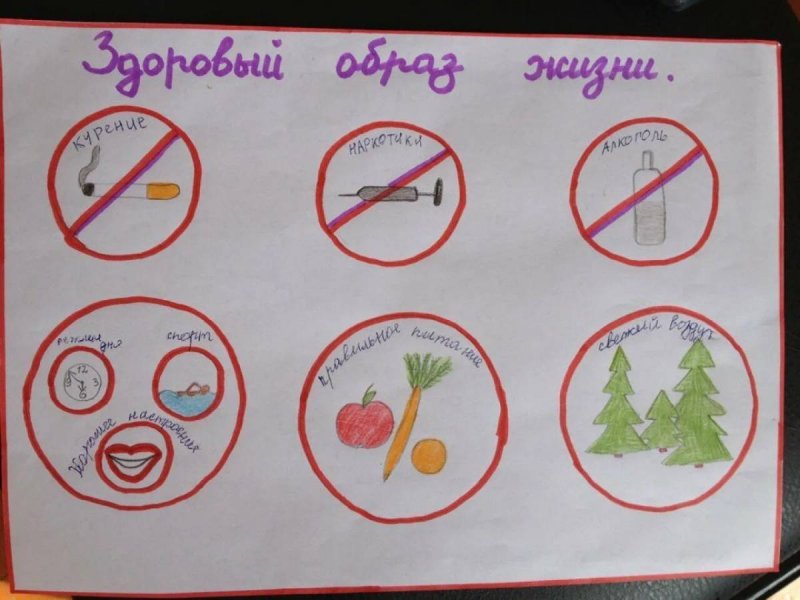 Здоровый образ жизни.
курение
НАРКОТИКИ
АЛКОГОЛЬ
режим дня
спорт
хорошее настроения
правильное питание
свежий воздух
12
9 3
6